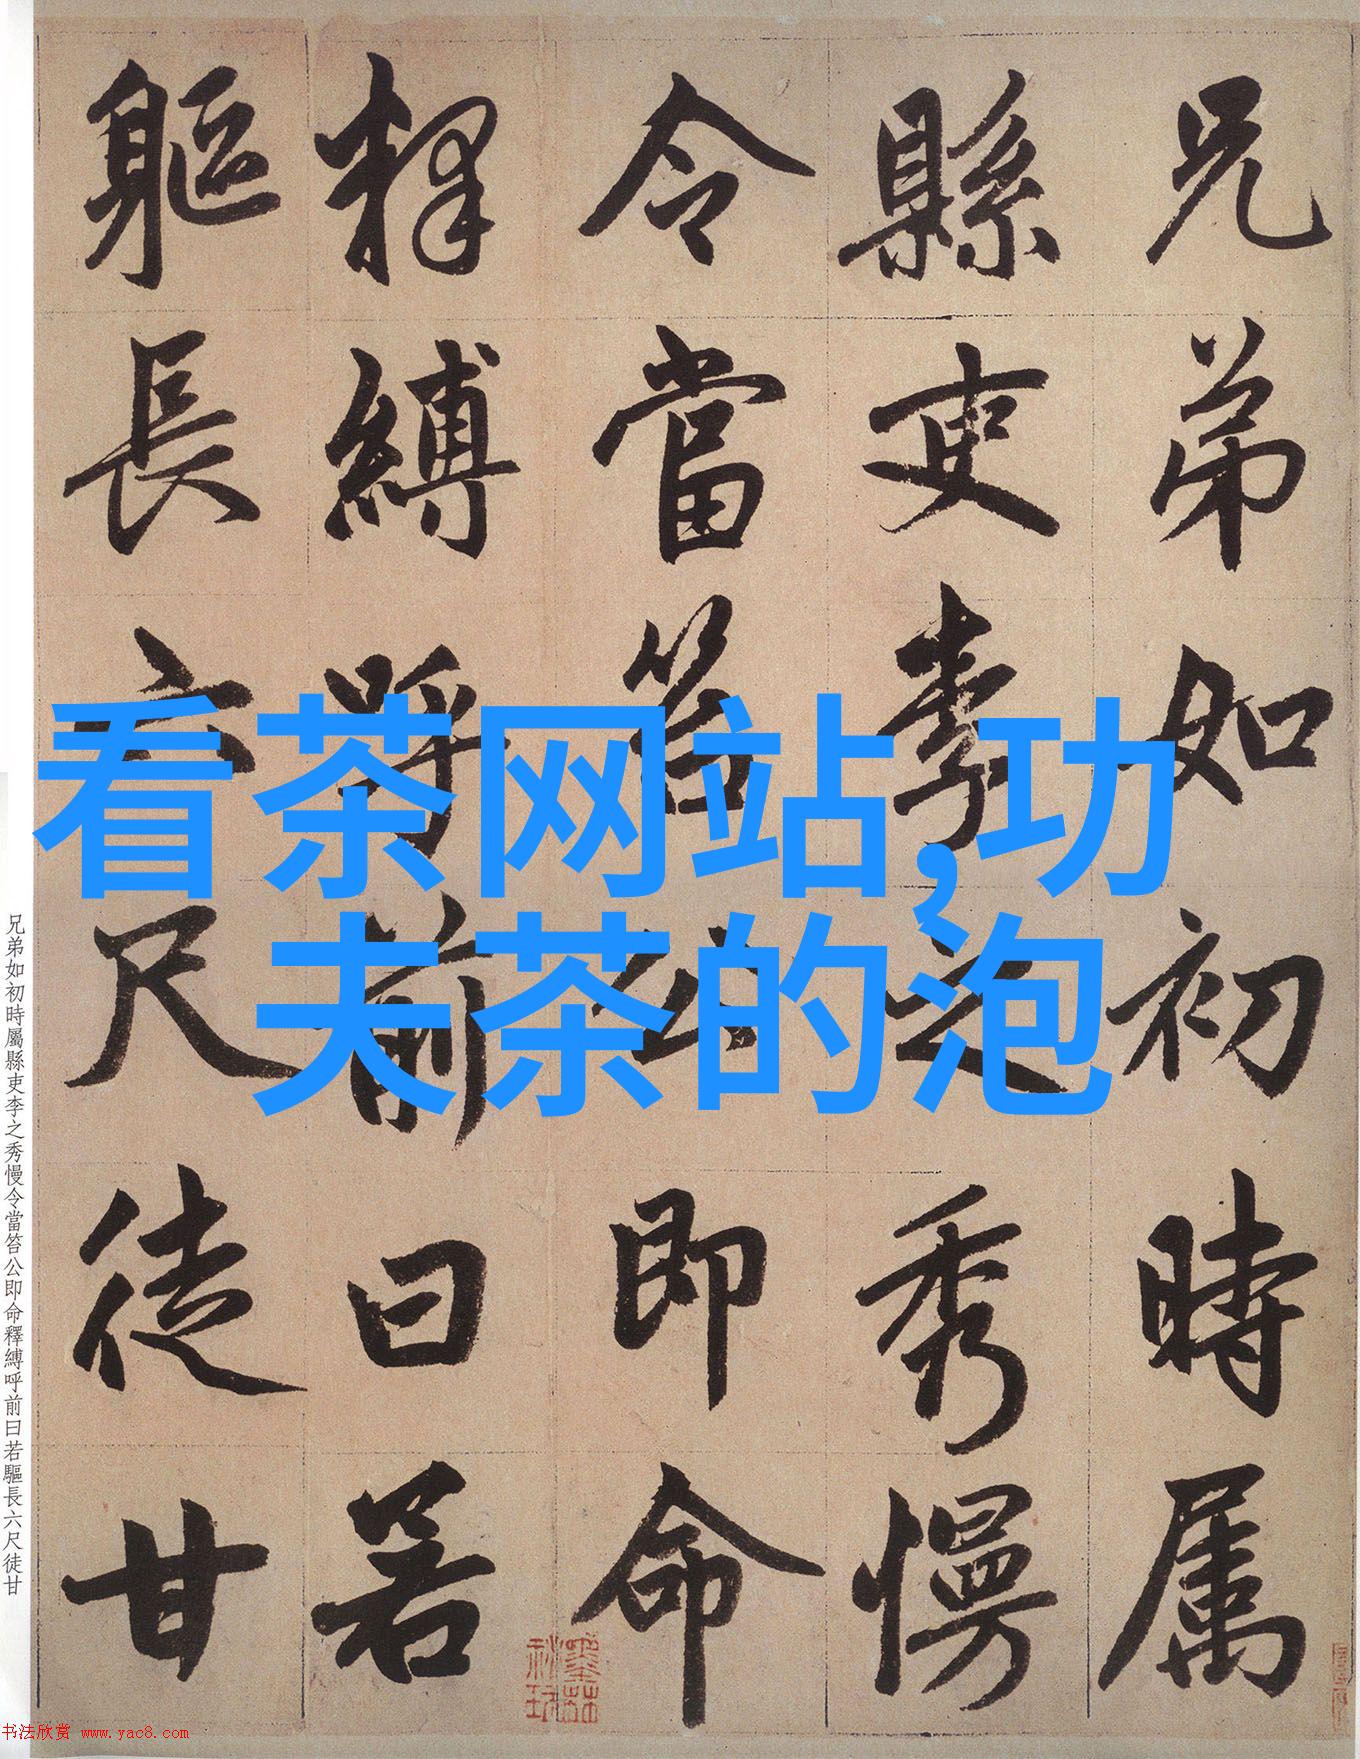 兄弟如初時属
縣吏李之秀慢
令當笞公即命
釋縛呼前曰若
軀長六尺徒甘
看茶网站,功
夫茶的泡
兄弟如初時屬縣吏李之秀慢令當笞公即命釋縛呼前曰若驅長六尺徒甘
书法欣赏 www.yac8.com